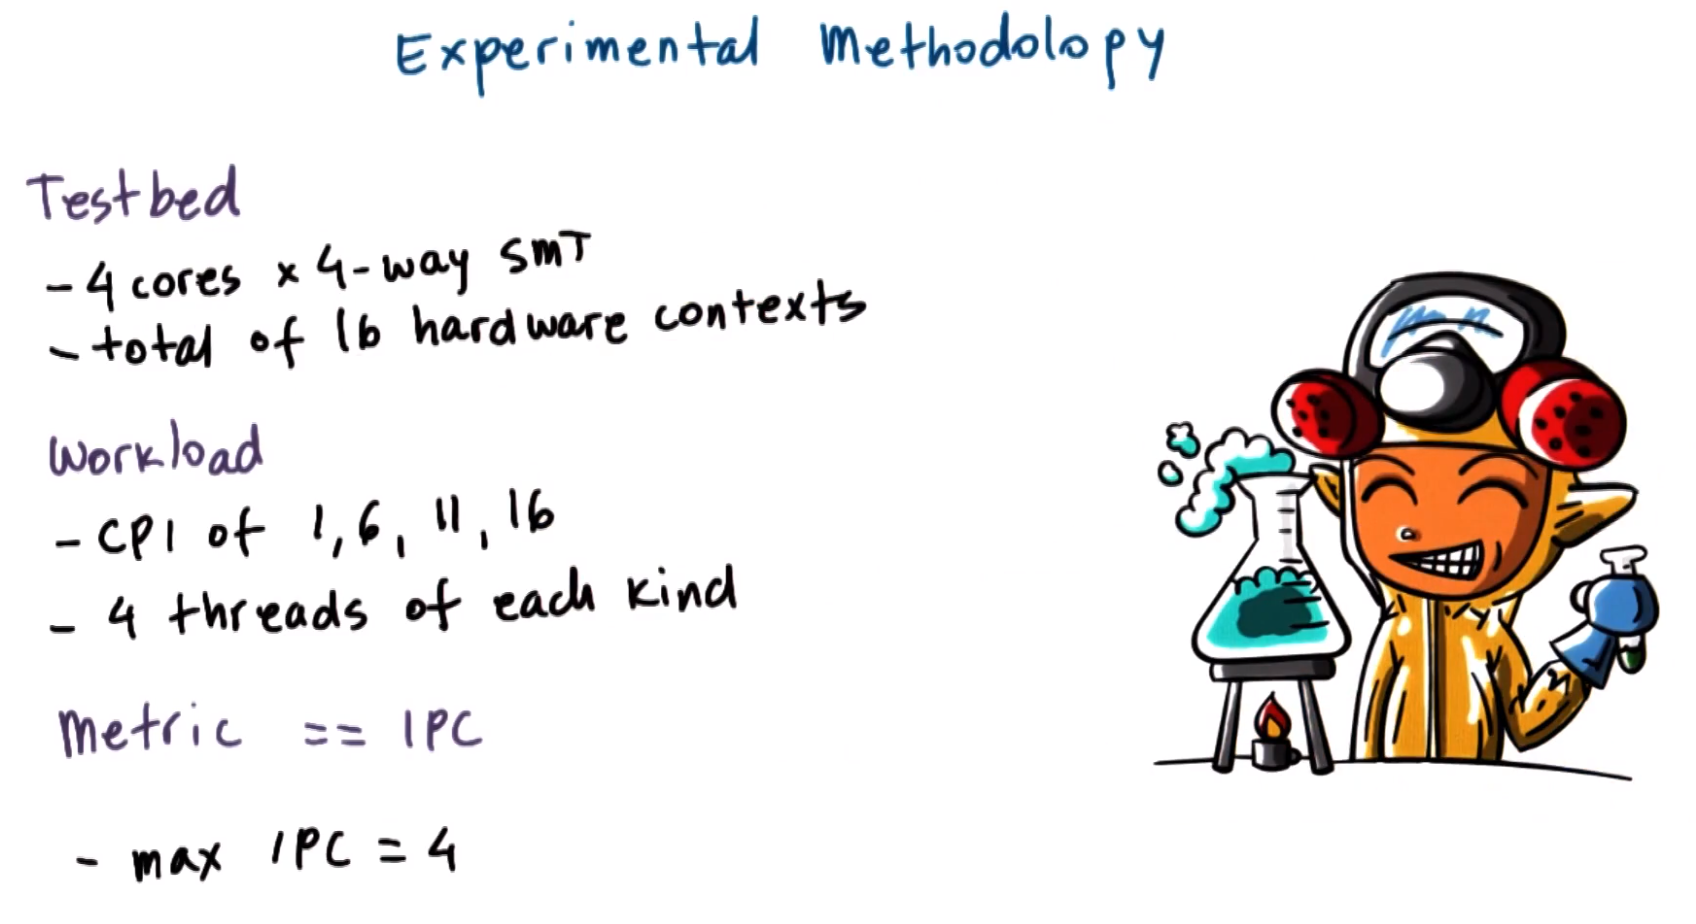 Experimental Methodology
Testbed
- 4 cores x 4-way SMT
- total of 16 hardware contexts
Workload
- CPI of 1, 6, 11, 16
- 4 threads of each kind
Metric == IPC
- max IPC = 4